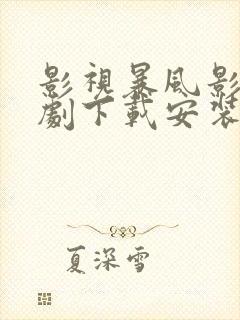 影視暴風影
劇下載安裝
夏深雪